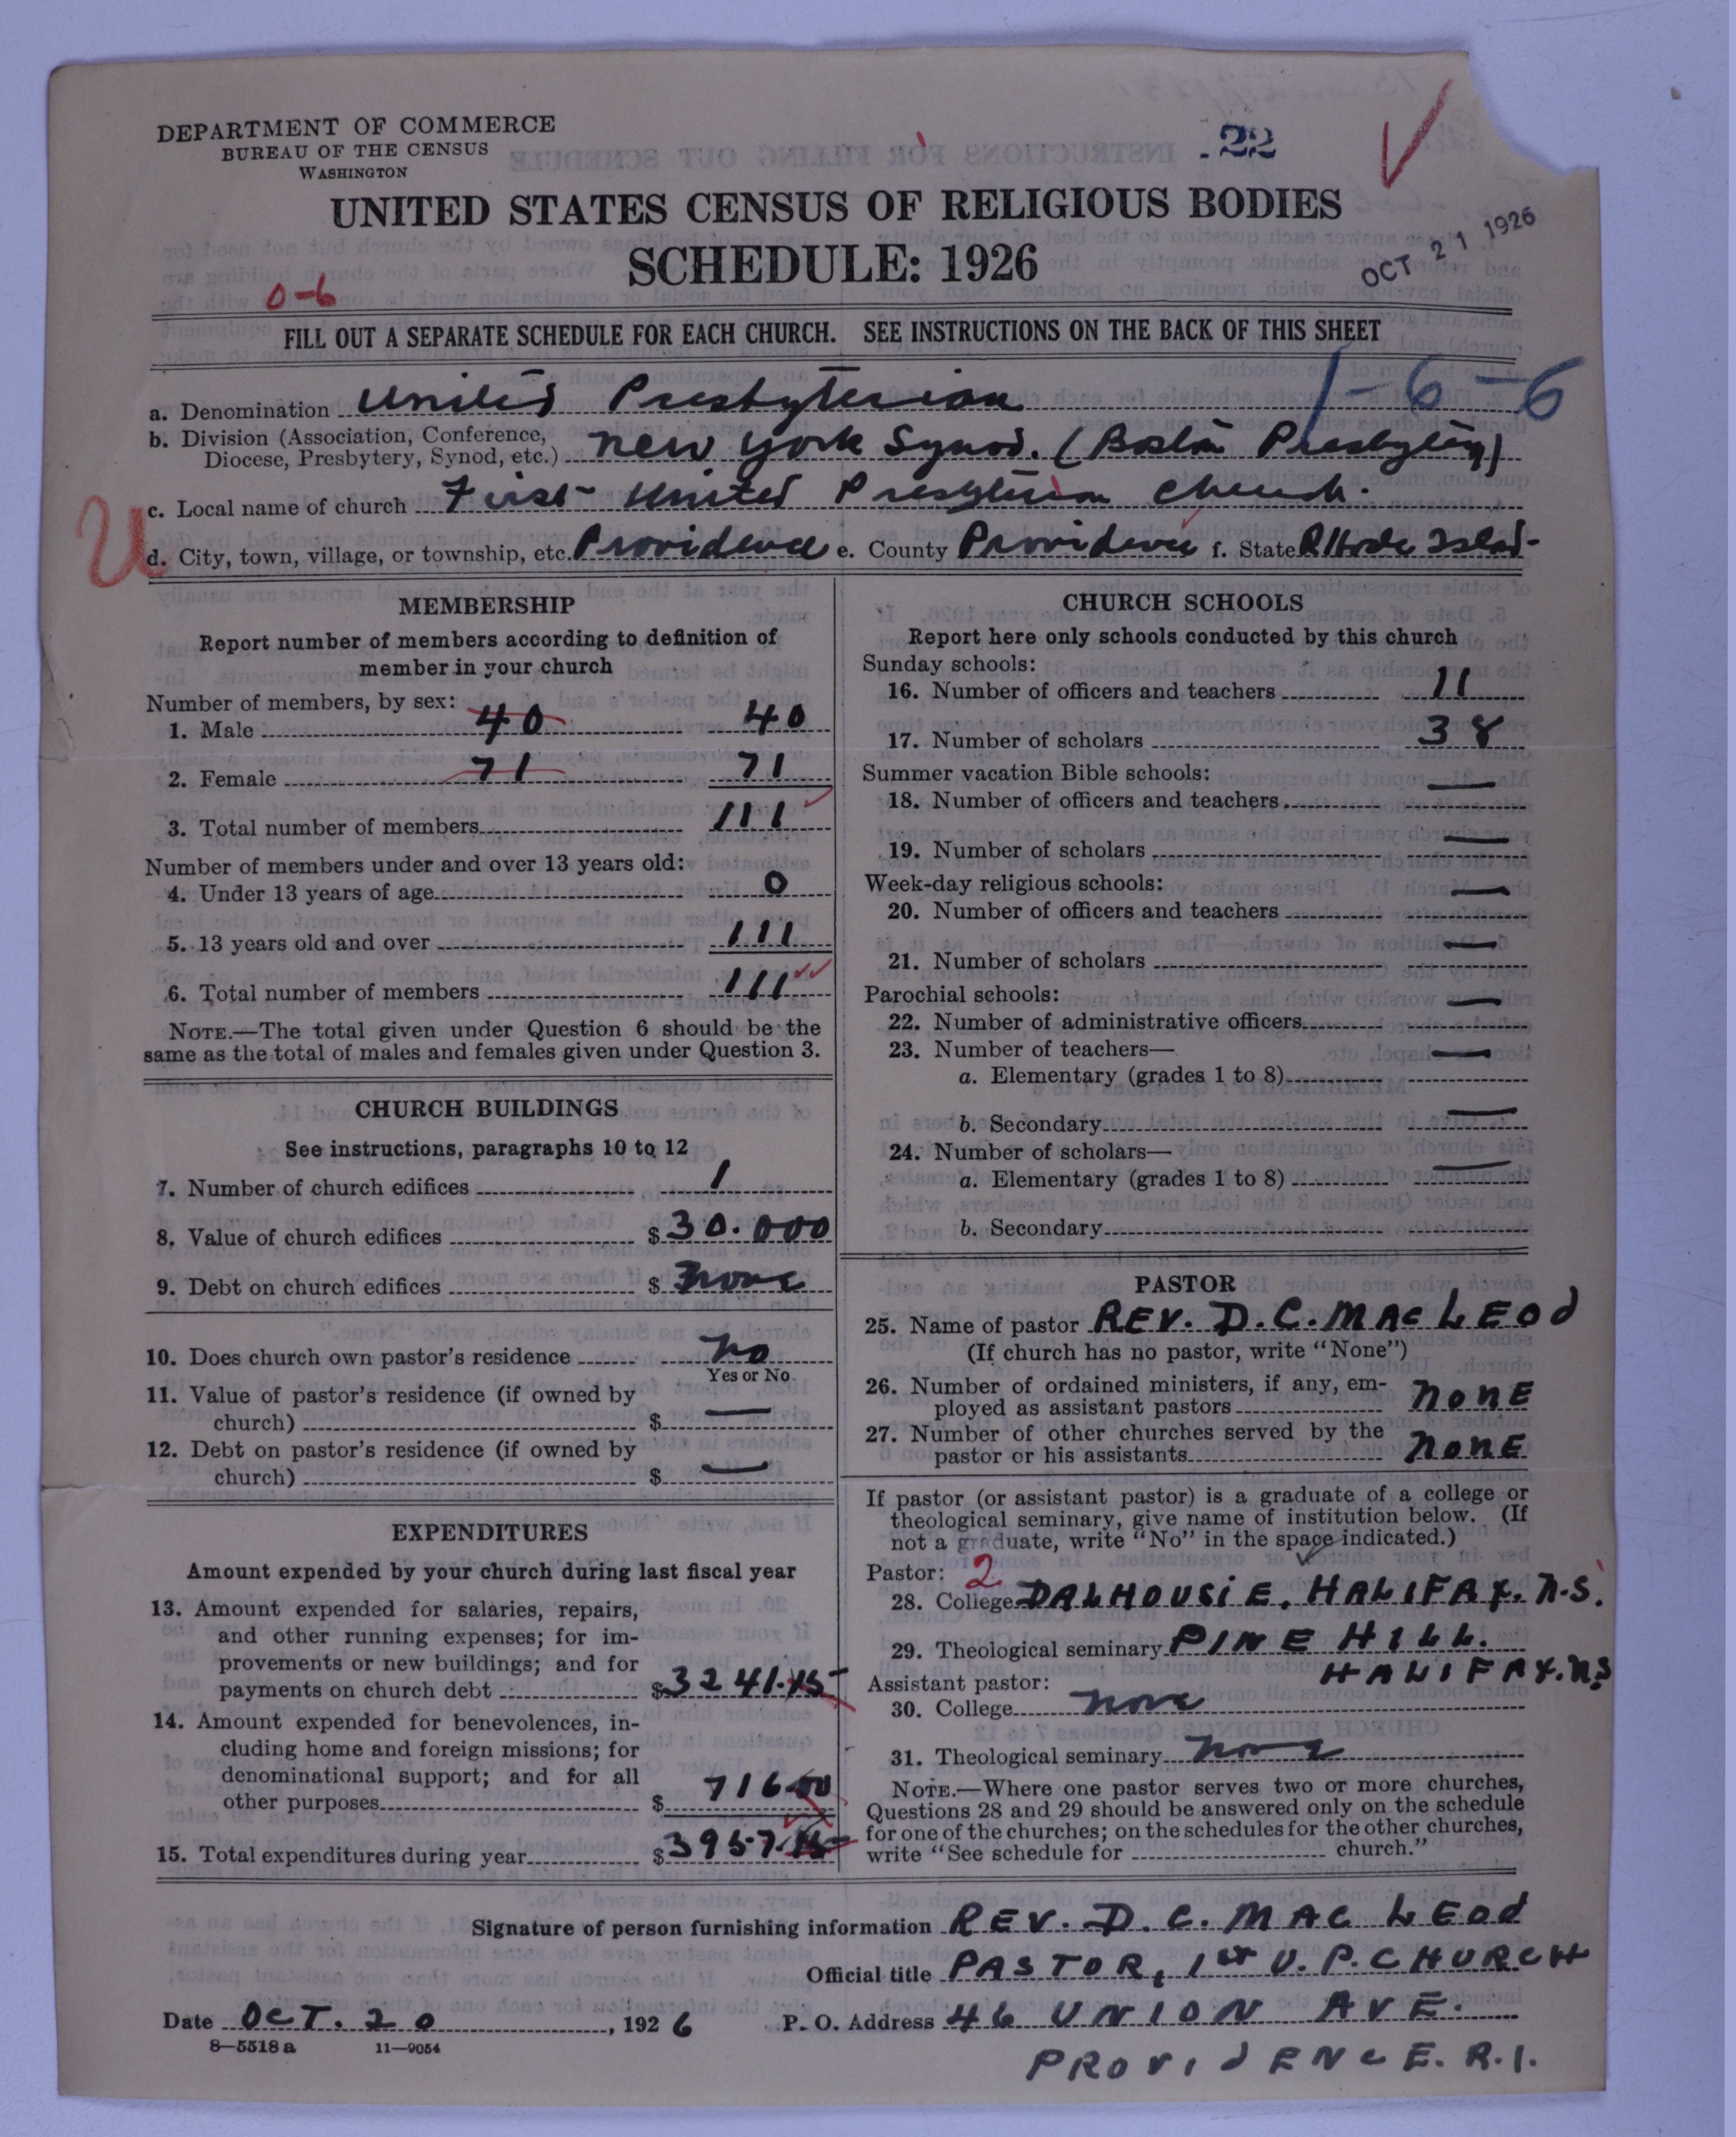 DEPARTMENT OF COMMERCE
BUREAU OF THE CENSUS
WASHINGTON
22
UNITED STATES CENSUS OF RELIGIOUS BODIES
SCHEDULE: 1926
OCT 21 1926
0-6
FILL OUT A SEPARATE SCHEDULE FOR EACH CHURCH. SEE INSTRUCTIONS ON THE BACK OF THIS SHEET
1-6-6
a. Denomination United Presbyterian
b. Division (Association, Conference, Diocese, Presbytery, Synod, etc.) New York Synod. (Boston Presbytery)
U
c. Local name of church First United Presbyterian Church.
d. City, town, village, or township, etc. Providence e. County Providence f. State Rhode Island
MEMBERSHIP
Report number of members according to definition of
member in your church
Number of members, by sex:
1. Male 40 40
2. Female 71 71
3. Total number of members 111
Number of members under and over 13 years old:
4. Under 13 years of age 0
5. 13 years old and over 111
6. Total number of members 111
NOTE.—The total given under Question 6 should be the
same as the total of males and females given under Question 3.
CHURCH BUILDINGS
See instructions, paragraphs 10 to 12
7. Number of church edifices 1
8. Value of church edifices $30.000
9. Debt on church edifices $ None
10. Does church own pastor's residence No
Yes or No
11. Value of pastor's residence (if owned by
church) $ —
12. Debt on pastor's residence (if owned by
church) $ —
EXPENDITURES
Amount expended by your church during last fiscal year
13. Amount expended for salaries, repairs,
and other running expenses; for im-
provements or new buildings; and for
payments on church debt $3241.15
14. Amount expended for benevolences, in-
cluding home and foreign missions; for
denominational support; and for all
other purposes $ 716.00
15. Total expenditures during year $3957.15
CHURCH SCHOOLS
Report here only schools conducted by this church
Sunday schools:
16. Number of officers and teachers 11
17. Number of scholars 38
Summer vacation Bible schools:
18. Number of officers and teachers —
19. Number of scholars —
Week-day religious schools:
20. Number of officers and teachers —
21. Number of scholars —
Parochial schools:
22. Number of administrative officers —
23. Number of teachers—
a. Elementary (grades 1 to 8) —
b. Secondary —
24. Number of scholars—
a. Elementary (grades 1 to 8) —
b. Secondary
PASTOR
25. Name of pastor REV. D. C. MAC LEOD
(If church has no pastor, write "None")
26. Number of ordained ministers, if any, em-
ployed as assistant pastors NONE
27. Number of other churches served by the
pastor or his assistants NONE
If pastor (or assistant pastor) is a graduate of a college or
theological seminary, give name of institution below. (If
not a graduate, write "No" in the space indicated.)
Pastor: 2
28. College DALHOUSIE, HALIFAX. N.S.
29. Theological seminary PINE HILL.
HALIFAX. N.S
Assistant pastor:
30. College None
31. Theological seminary None
NOTE.—Where one pastor serves two or more churches,
Questions 28 and 29 should be answered only on the schedule
for one of the churches; on the schedules for the other churches,
write "See schedule for church."
Signature of person furnishing information REV. D. C. MAC LEOD
Official title PASTOR, 1ST U. P. CHURCH
Date OCT. 20, 1926 P. O. Address 46 UNION AVE.
8—5518 a 11—9054
PROVIDENCE. R.I.